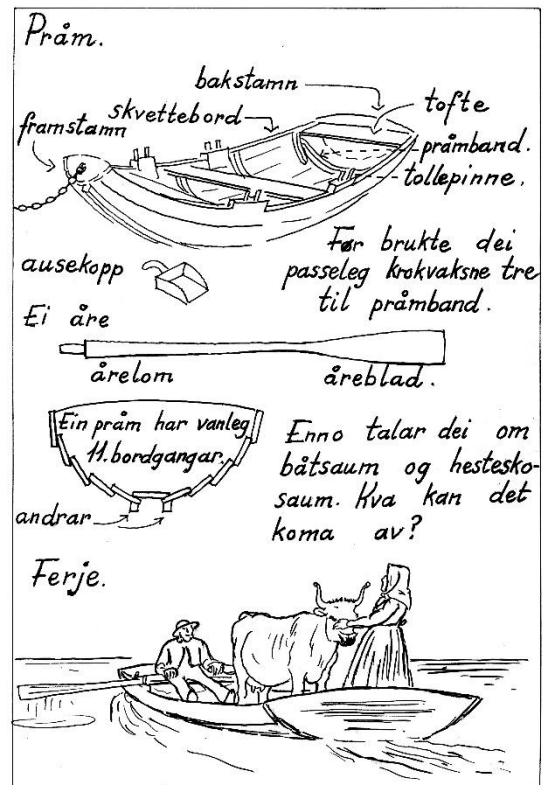 Pråm.
bakstamn
skvettebord
tofte
framstamn
pråmband.
tollepinne.
ausekopp
Før brukte dei
passeleg krokvaksne tre
til pråmband.
Ei åre
årelom
åreblad.
Ein pråm har vanleg
11. bordgangar.
andrar
Enno talar dei om
båtsaum og hestesko-
saum. Kva kan det
koma av?
Ferje.